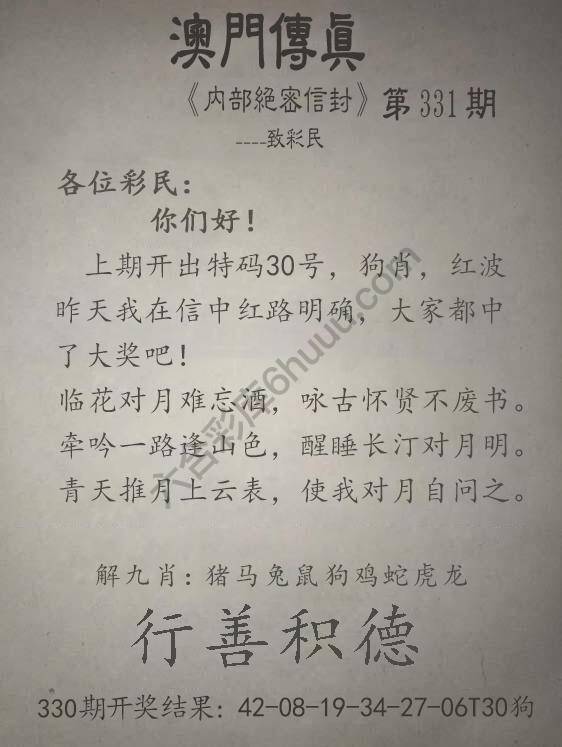 澳門傳真
《内部絕密信封》第331期
----致彩民
各位彩民：
你们好！
上期开出特码30号，狗肖，红波
昨天我在信中红路明确，大家都中
了大奖吧！
临花对月难忘酒，咏古怀贤不废书。
牵吟一路逢山色，醒睡长汀对月明。
青天推月上云表，使我对月自问之。
六合彩库6huuu.com
解九肖：猪马兔鼠狗鸡蛇虎龙
行善积德
330期开奖结果：42-08-19-34-27-06T30狗